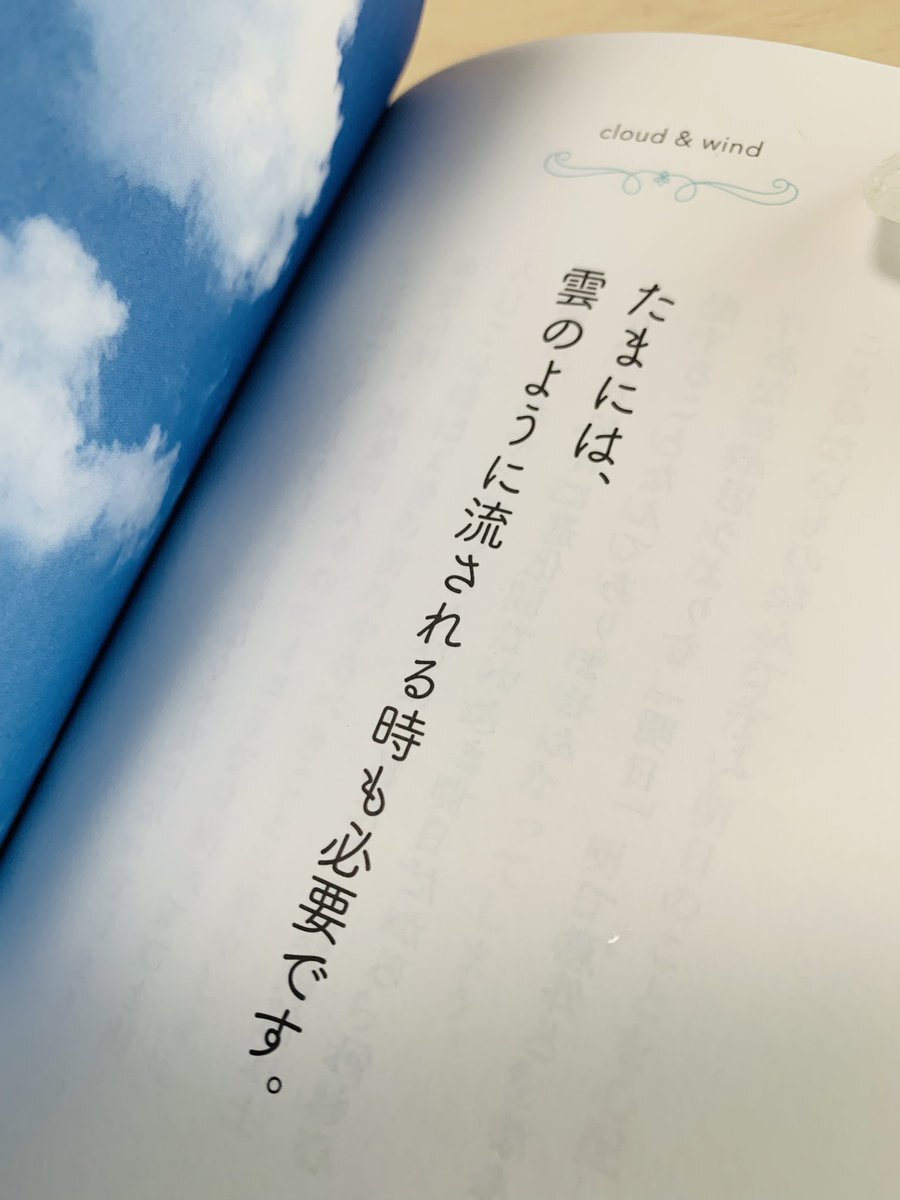 cloud & wind
たまには、
雲のように流される時も必要です。